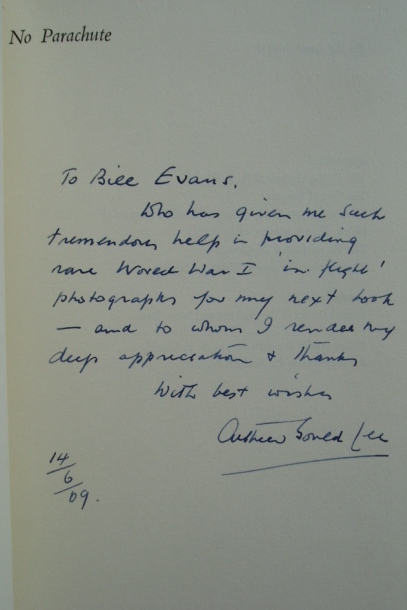 No Parachute
To Bill Evans,
Who has given me such
tremendous help in providing
rare World War I 'in flight'
photographs for my next book
— and to whom I render my
deep appreciation & thanks
With best wishes
Arthur Gould Lee
14
6
69.